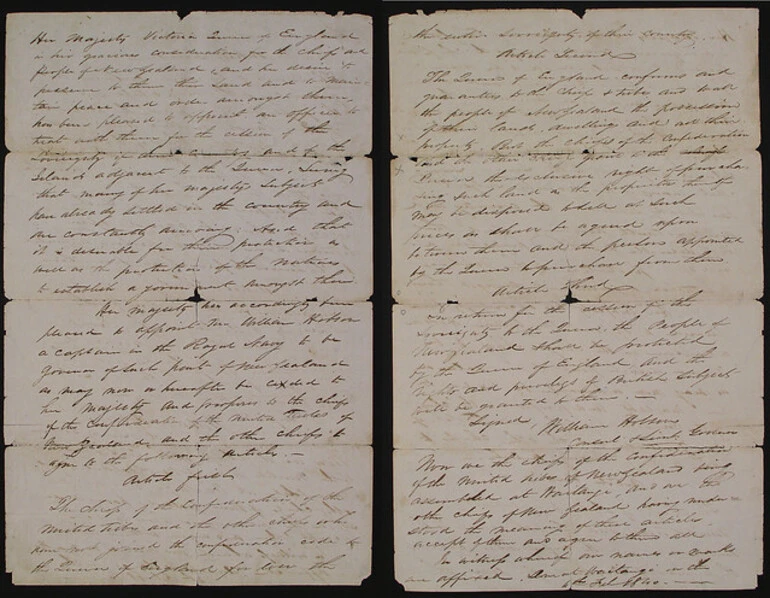 Her Majesty Victoria Queen of England
in her gracious consideration for the chiefs and
people of New Zealand, and her desire to
preserve to them their Land and to main-
tain peace and order amongst them,
has been pleased to appoint an officer to
treat with them for the cession of the
Sovreignty of their country and of the
Islands adjacent to the Queen, Seeing
that many of her Majesty's Subjects
have already settled in the country and
are constantly arriving; And that
it is desirable for their protection as
well as the protection of the natives
to establish a government amongst them.
Her Majesty has accordingly been
pleased to appoint Mr William Hobson
a captain in the Royal Navy to be
Governor of such parts of New Zealand
as may now or hereafter be ceded to
her Majesty and proposes to the chiefs
of the Confederation of the United Tribes of
New Zealand and the other chiefs to
agree to the following articles.—
Article first
The chiefs of the Confederation of the
United Tribes and the other chiefs who
have not joined the confederation cede to
the Queen of England for ever the
the entire Sovreignty of their country.
Article Second
The Queen of England confirms and
guarantees to the chiefs & tribes and to all
the people of New Zealand the possession
of their lands, dwellings and all their
property. But the chiefs of the Confederation
and the other chiefs grant to the
Queen the exclusive right of purcha-
sing such land as the proprietors thereof
may be disposed to sell at such
prices as shall be agreed upon
between them and the persons appointed
by the Queen to purchase from them
Article Third
In return for the cession of the
Sovreignty to the Queen, the People of
New Zealand shall be protected
by the Queen of England and the
rights and privileges of British subjects
will be granted to them.—
Signed
William Hobson
Consul & Lieut. Governor
Now we the chiefs of the Confederation
of the United tribes of New Zealand being
assembled at Waitangi, and we the
other chiefs of New Zealand having under-
stood the meaning of these articles,
accept of them and agree to them all
In witness whereof our names or marks
are affixed. Done at Waitangi on the
4th Feb. 1840.—